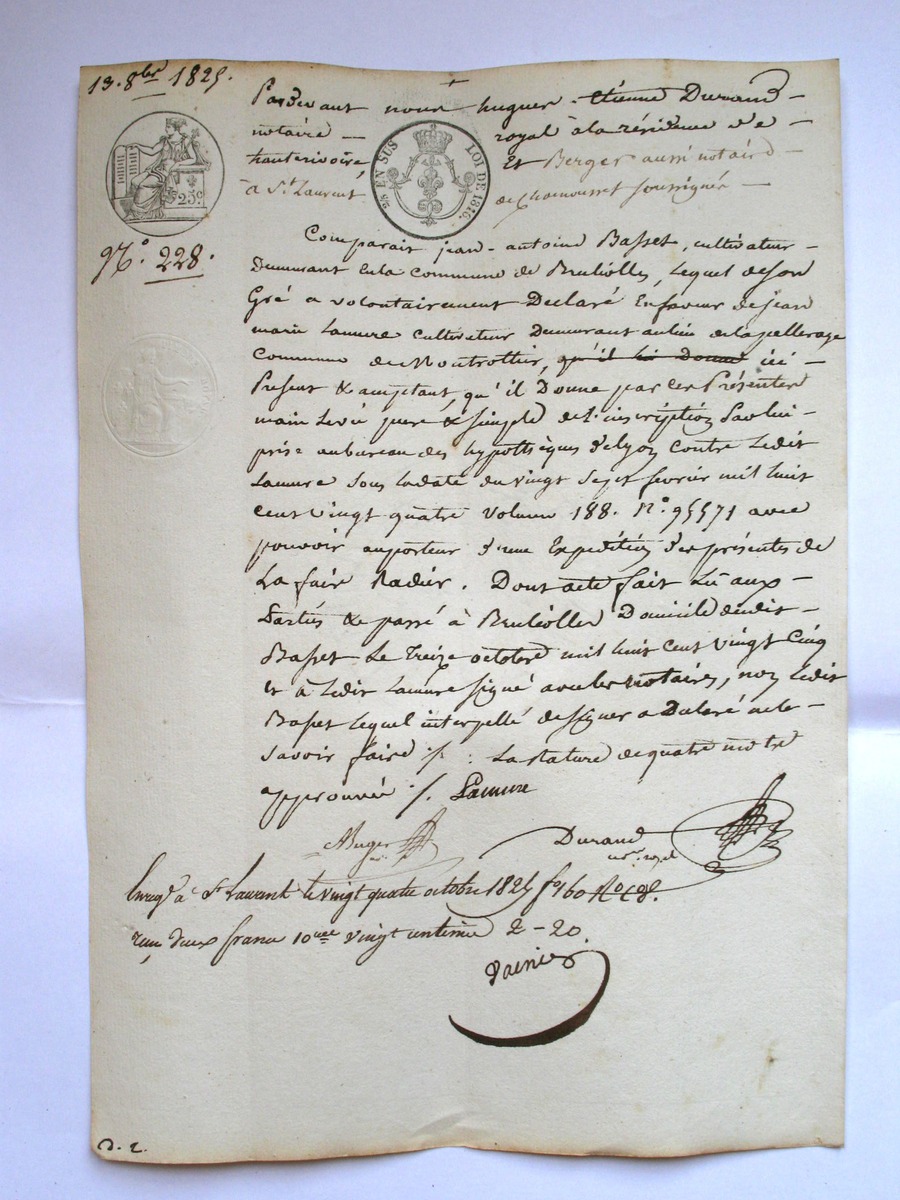 13. 8bre 1825.
Pardevant nous hugues-étienne Durand -
notaire - royal à la résidence de -
hauterivoire Et Berger aussi notaire -
à St Laurent de Chamousset soussignés -
25c
2/5 EN SUS LOI DE 1816.
No. 228.
Comparait jean-antoine Basset, cultivateur -
Demeurant En la commune de Brulliolles, Lequel de son
Gré a volontairement Déclaré En faveur de jean
marie Lamure cultivateur Demeurant au lieu de la pellerage
Commune de Montrottier, qu'il lui donne ici -
Present & acceptant, qu'il Donne par Ces Présentes
main Levée pure & simple de l'inscription Par lui -
prise au bureau des hypothèques de lyon contre Ledit
Lamure sous la date du vingt sept fevrier mil huit
cent vingt quatre volume 188. No. 95571 avec
pouvoir au porteur d'une Expedition des présentes de
La faire Radier. Dont acte fait Lu aux -
Parties & passé à Brulliolles Domicile dudit -
Basset Le Treize octobre mil huit cent vingt Cinq
et à Ledit Lamure signé avec les notaires, non Ledit
Basset Lequel interpellé de signer a Déclaré ne le -
savoir faire /. : La Rature de quatre mots
approuvée /. Lamure
Durand
not. royal
Enregé à St Laurent le vingt quatre octobre 1825 fo 60 Ro
reçu deux francs 10me vingt centimes 2-20.
D. 2.